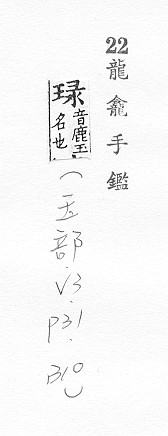 22龍龕手鑑
琭音鹿玉名也
(玉部.V3.P31.B10)